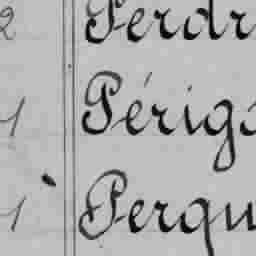 2 Perdr
1 Périgo
1 Pergu